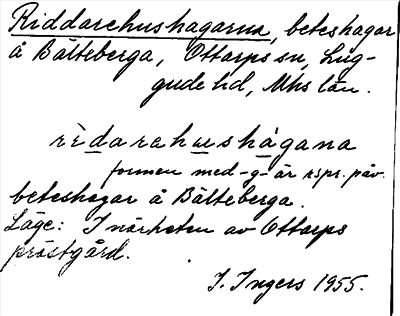 Riddarehushagarna, beteshagar
å Bälteberga, Ottarps sn, Lug-
gude hd, Mhs län.
rìdarahushágana
formen med -g- är rspr. påv.
beteshagar å Bälteberga.
Läge: I närheten av Ottarps
prästgård.
I. Ingers 1955.